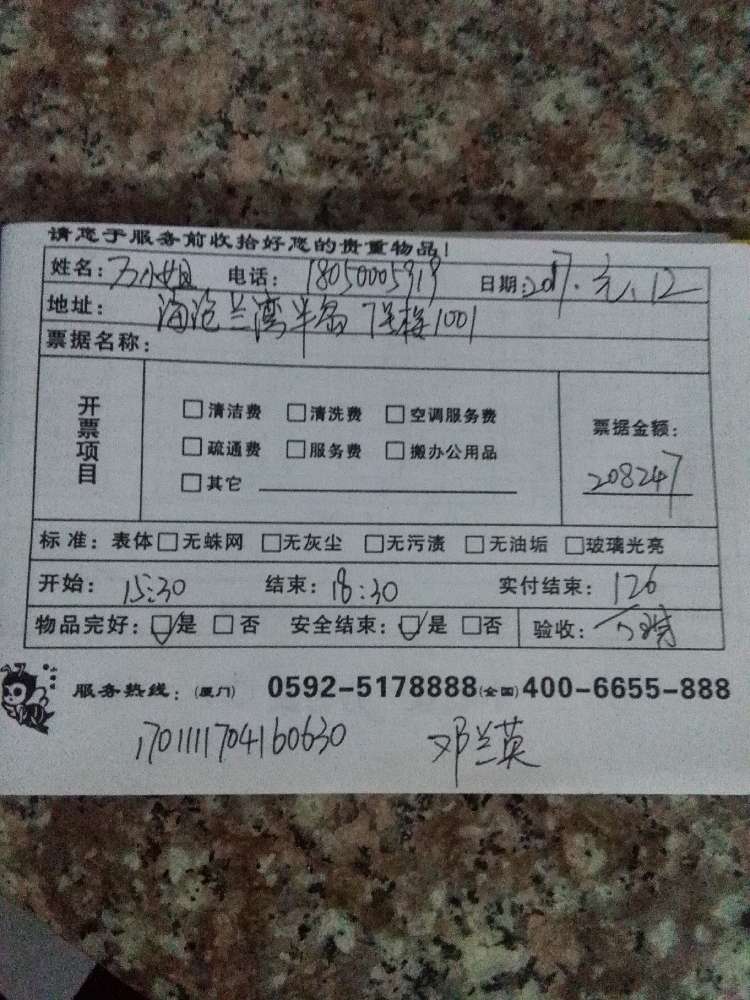 请您于服务前收拾好您的贵重物品!
姓名: 万小姐 电话: 18050005919 日期: 2017.元.12
地址: 海沧兰湾半岛 7号楼1001
票据名称:
开票项目
□清洁费 □清洗费 □空调服务费
□疏通费 □服务费 □搬办公用品
□其它
票据金额:
208247
标准: 表体□无蛛网 □无灰尘 □无污渍 □无油垢 □玻璃光亮
开始: 15:30 结束: 18:30 实付结束: 126
物品完好: ☑是 □否 安全结束: ☑是 □否 验收: 万
服务热线: (厦门) 0592-5178888 (全国) 400-6655-888
1701111704160630 邓兰英